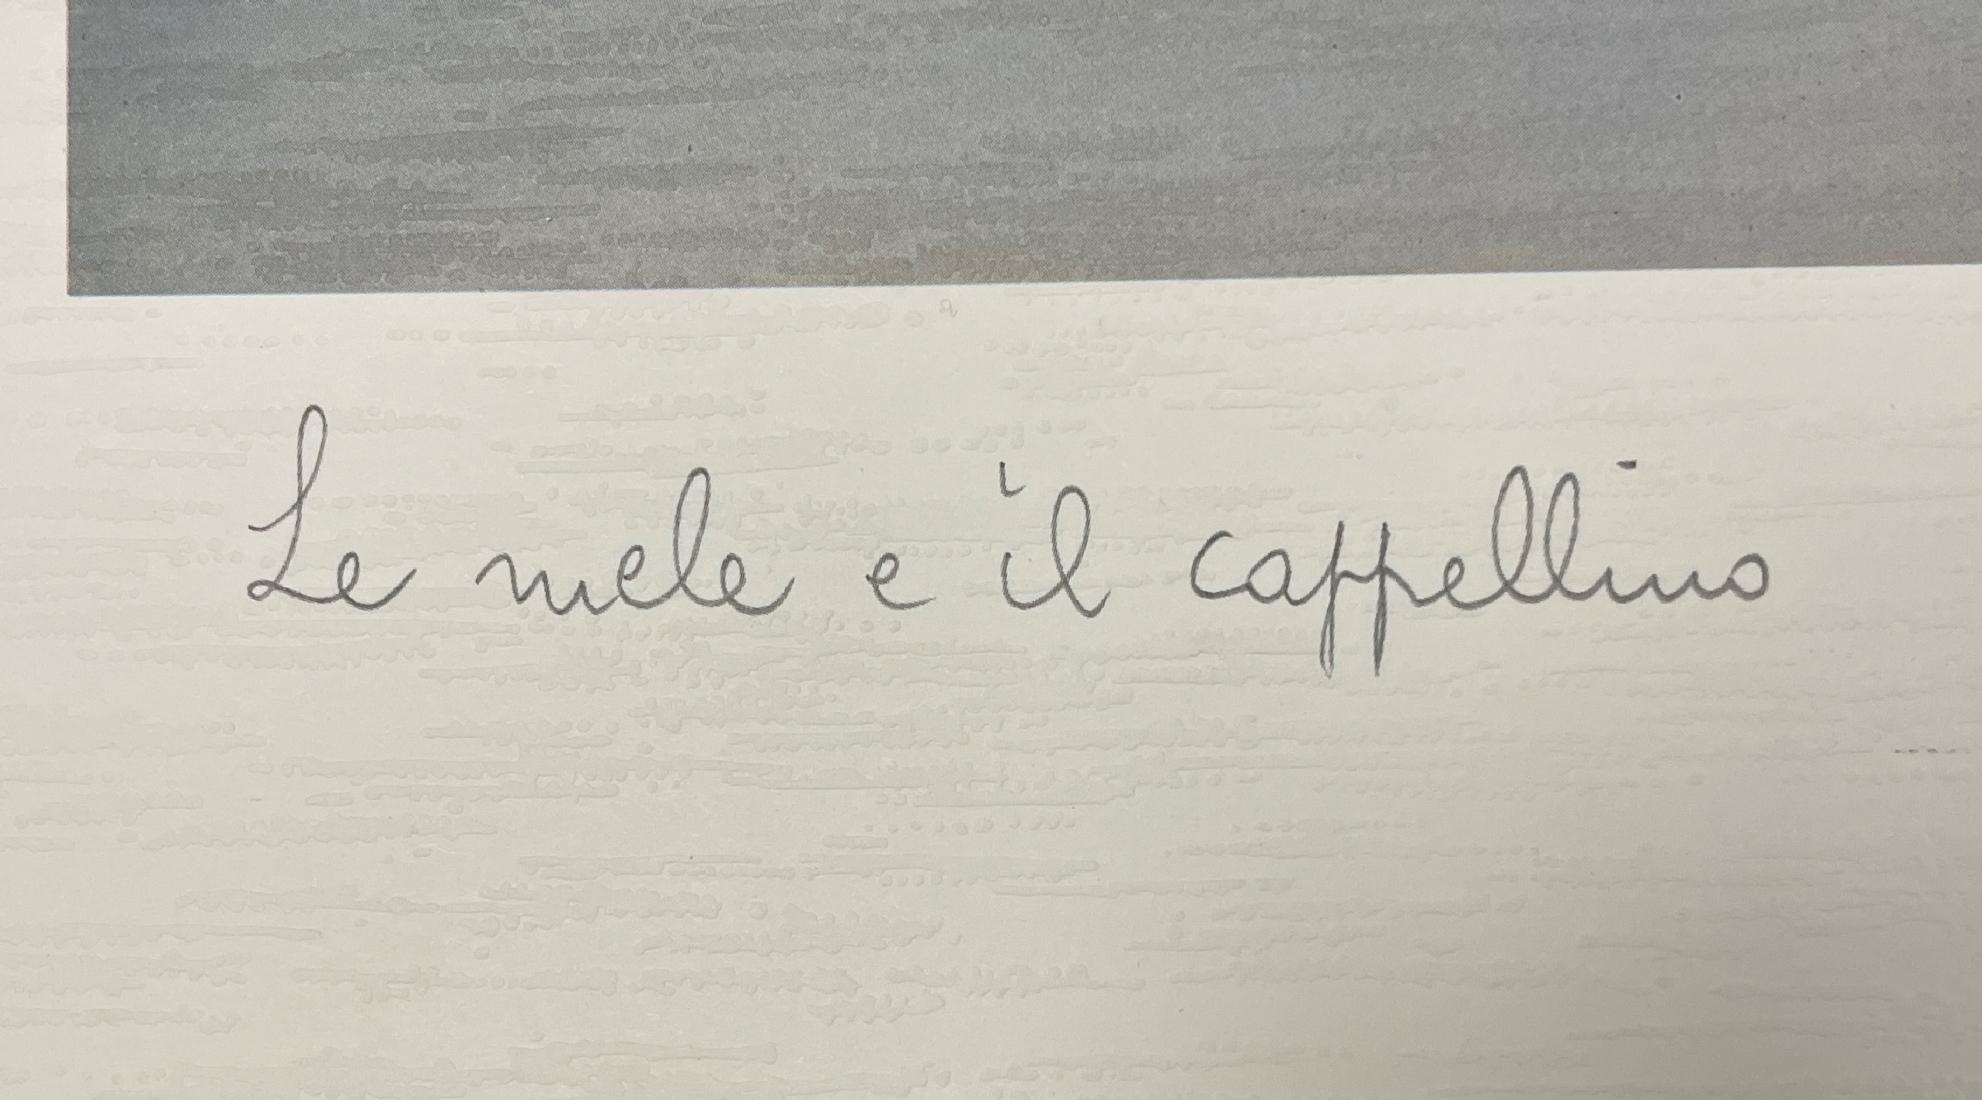 Le mele e il cappellino